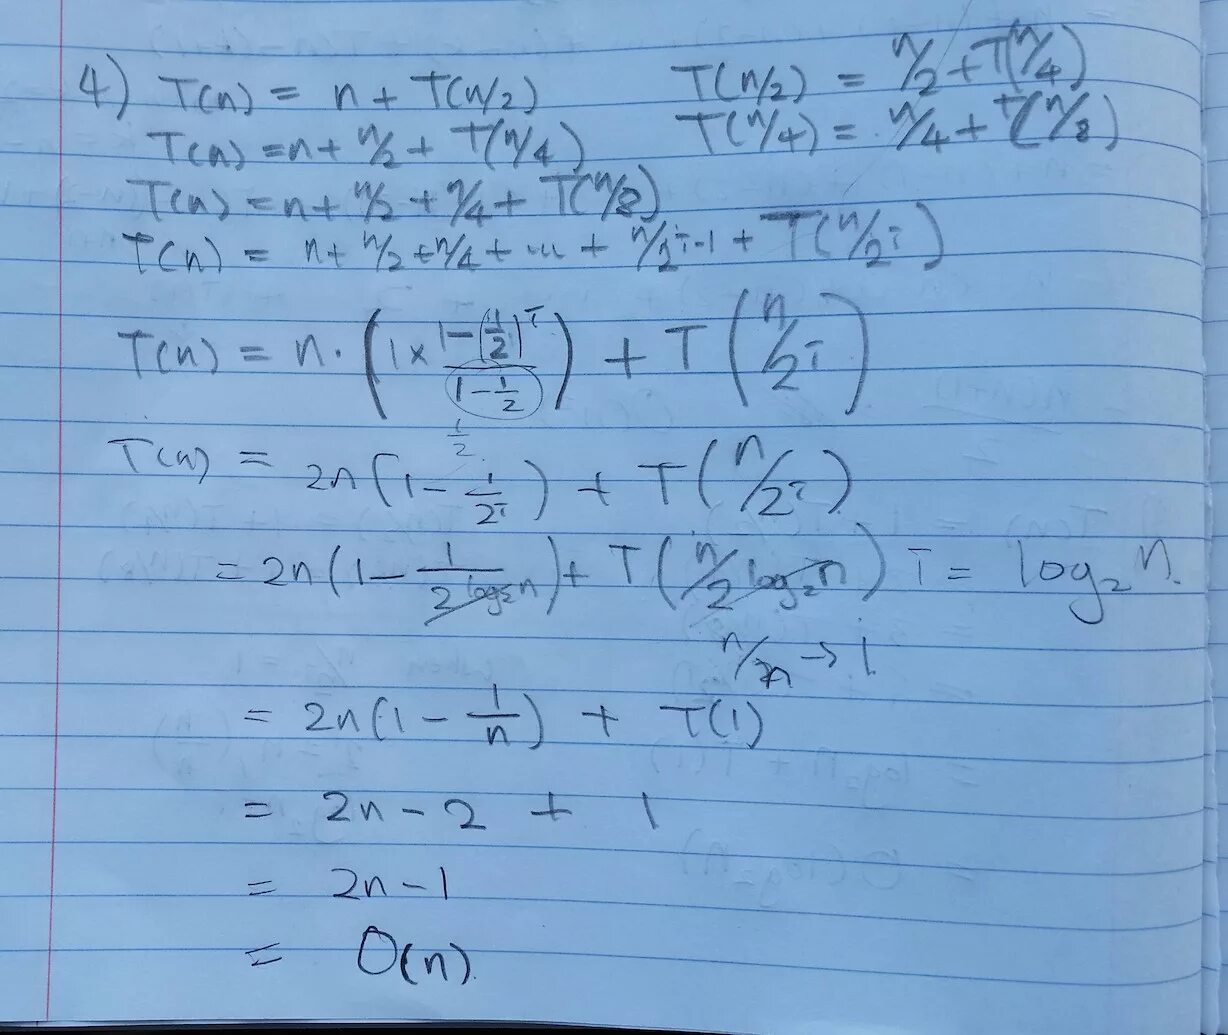 4) T(n) = n + T(n/2)    T(n/2) = n/2 + T(n/4)
T(n) = n + n/2 + T(n/4)    T(n/4) = n/4 + T(n/8)
T(n) = n + n/2 + n/4 + T(n/8)
T(n) = n + n/2 + n/4 + ... + n/2^i-1 + T(n/2^i)
T(n) = n · (1 × (1 - (1/2)^i)/(1 - 1/2)) + T(n/2^i)
1/2
T(n) = 2n(1 - 1/2^i) + T(n/2^i)
= 2n(1 - 1/2^log₂n) + T(n/2^log₂n)    i = log₂n.
n/n → 1.
= 2n(1 - 1/n) + T(1)
= 2n - 2 + 1
= 2n - 1
= O(n)